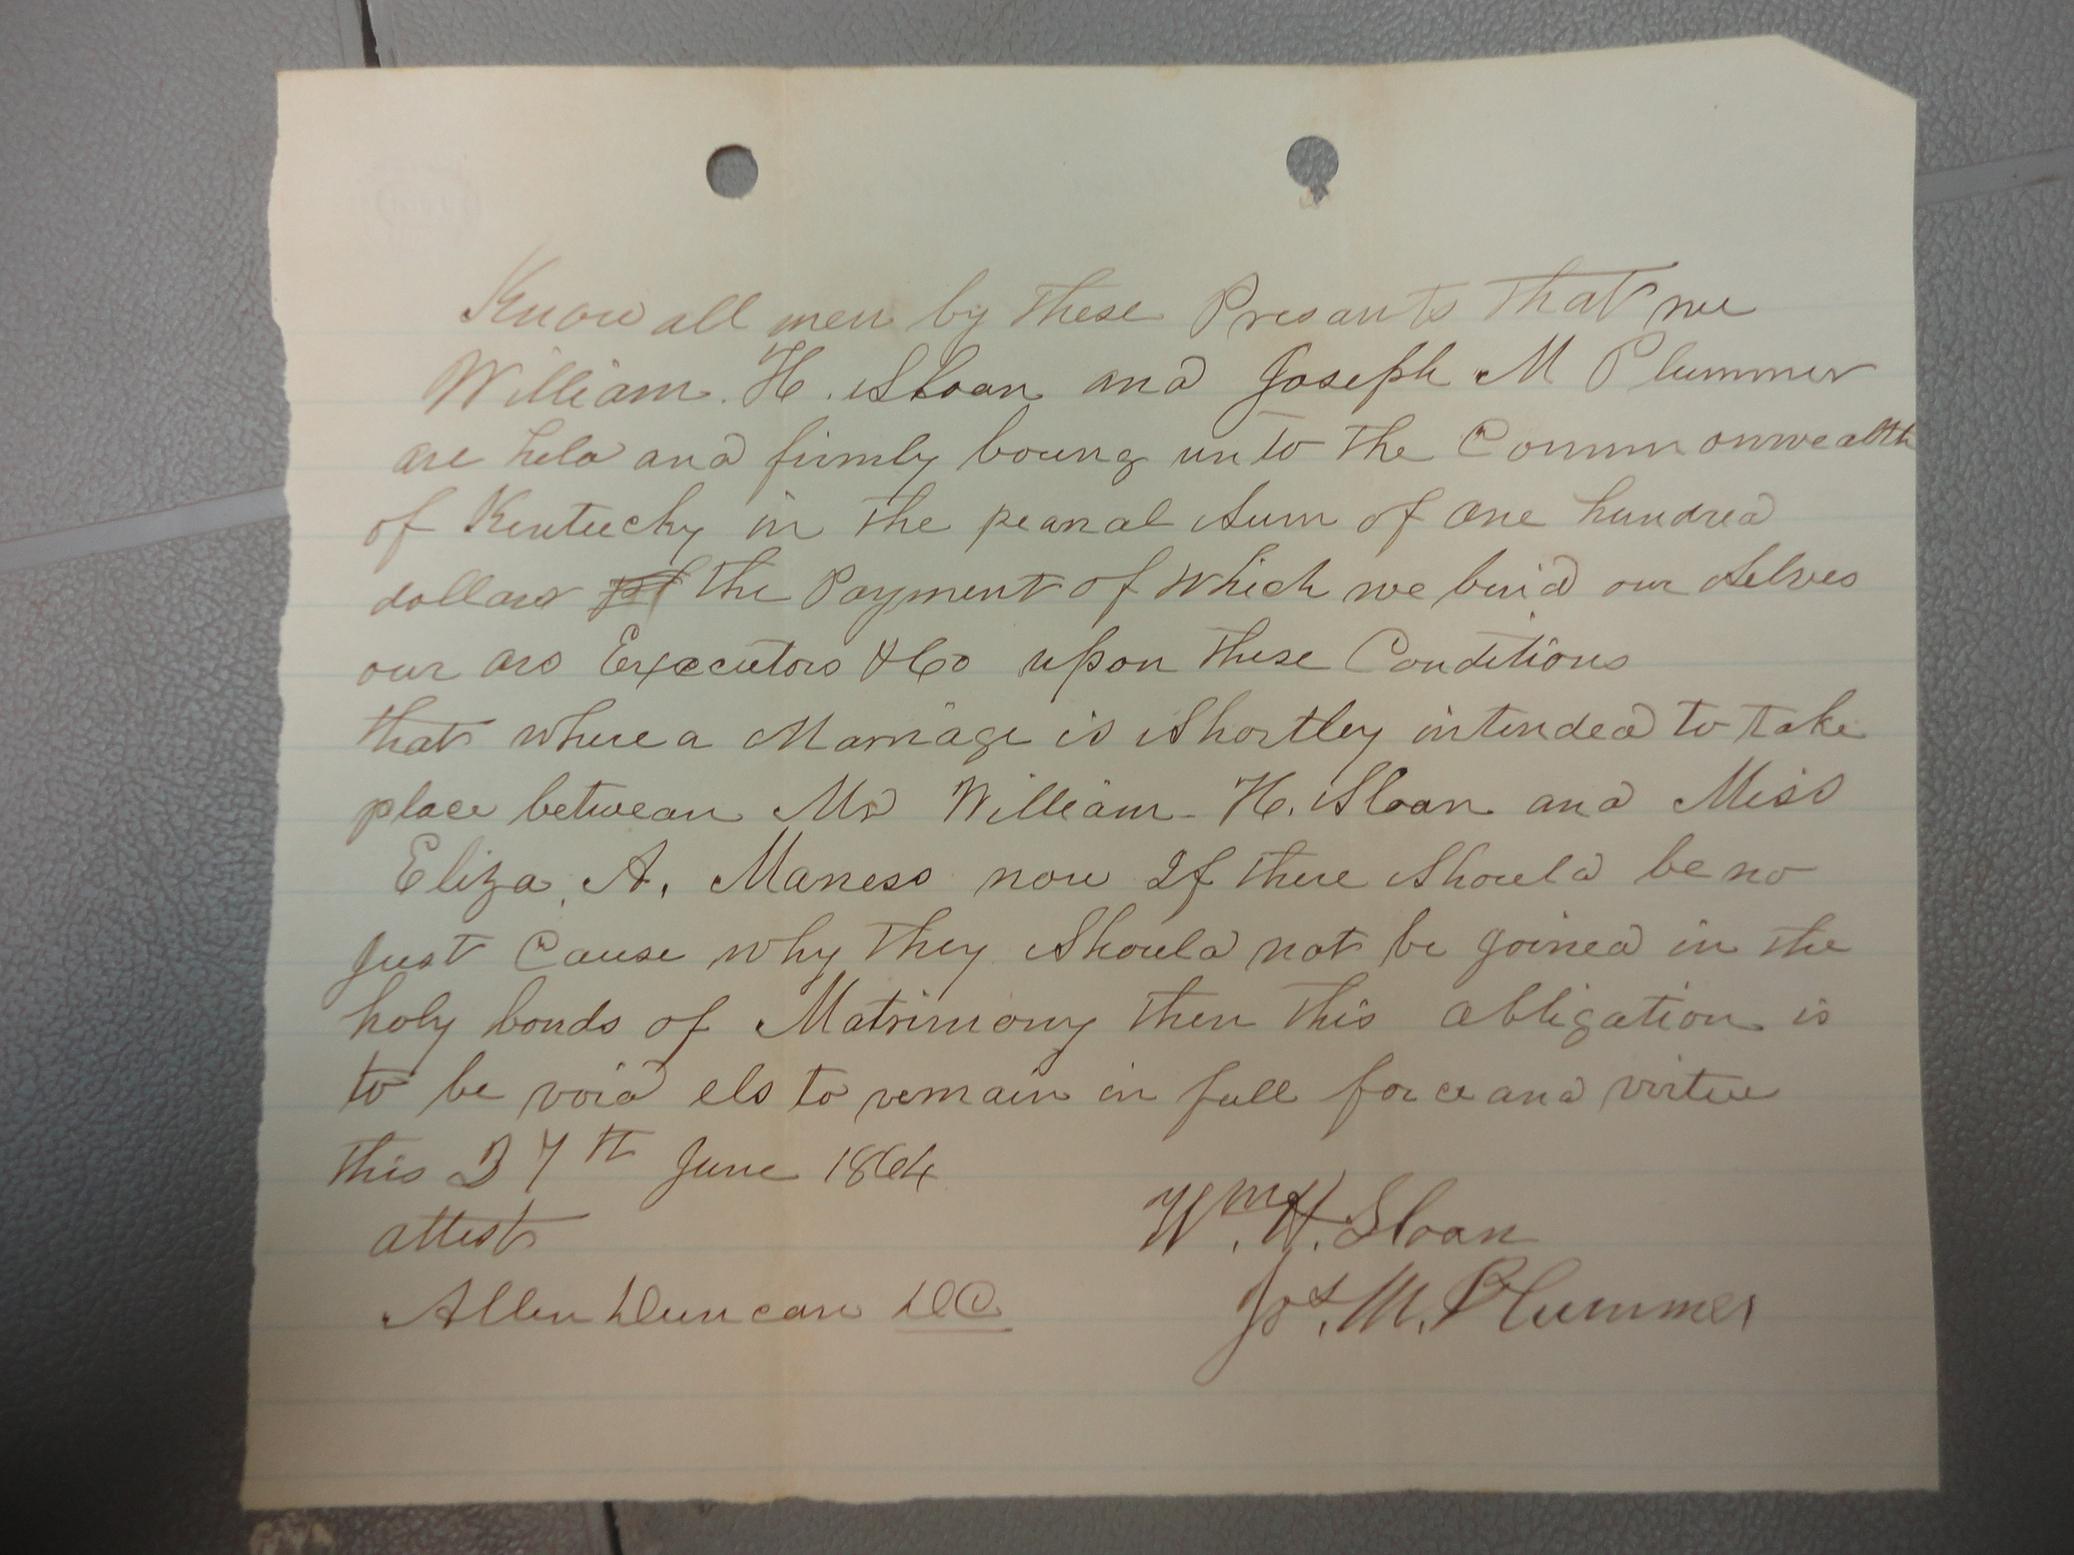 Know all men by these Presants that we
William. H. Sloan and Joseph M Plummer
are held and firmly boung unto the Commonwealth
of Kentucky in the peanal Sum of one hundred
dollars the Payment of which we buid our selves
our ars Executors &Co upon these Conditions
that where a Marriage is Shortley intended to take
place betwean Mr William H. Sloan and Miss
Eliza, A, Maness now If there Should be no
just Cause why they Should not be joined in the
holy bonds of Matrimony then this obligation is
to be void els to remain in full force and virtue
this 27th June 1864
attest
Wm. H. Sloan
Jos. M. Plummer
Allen Duncan DC